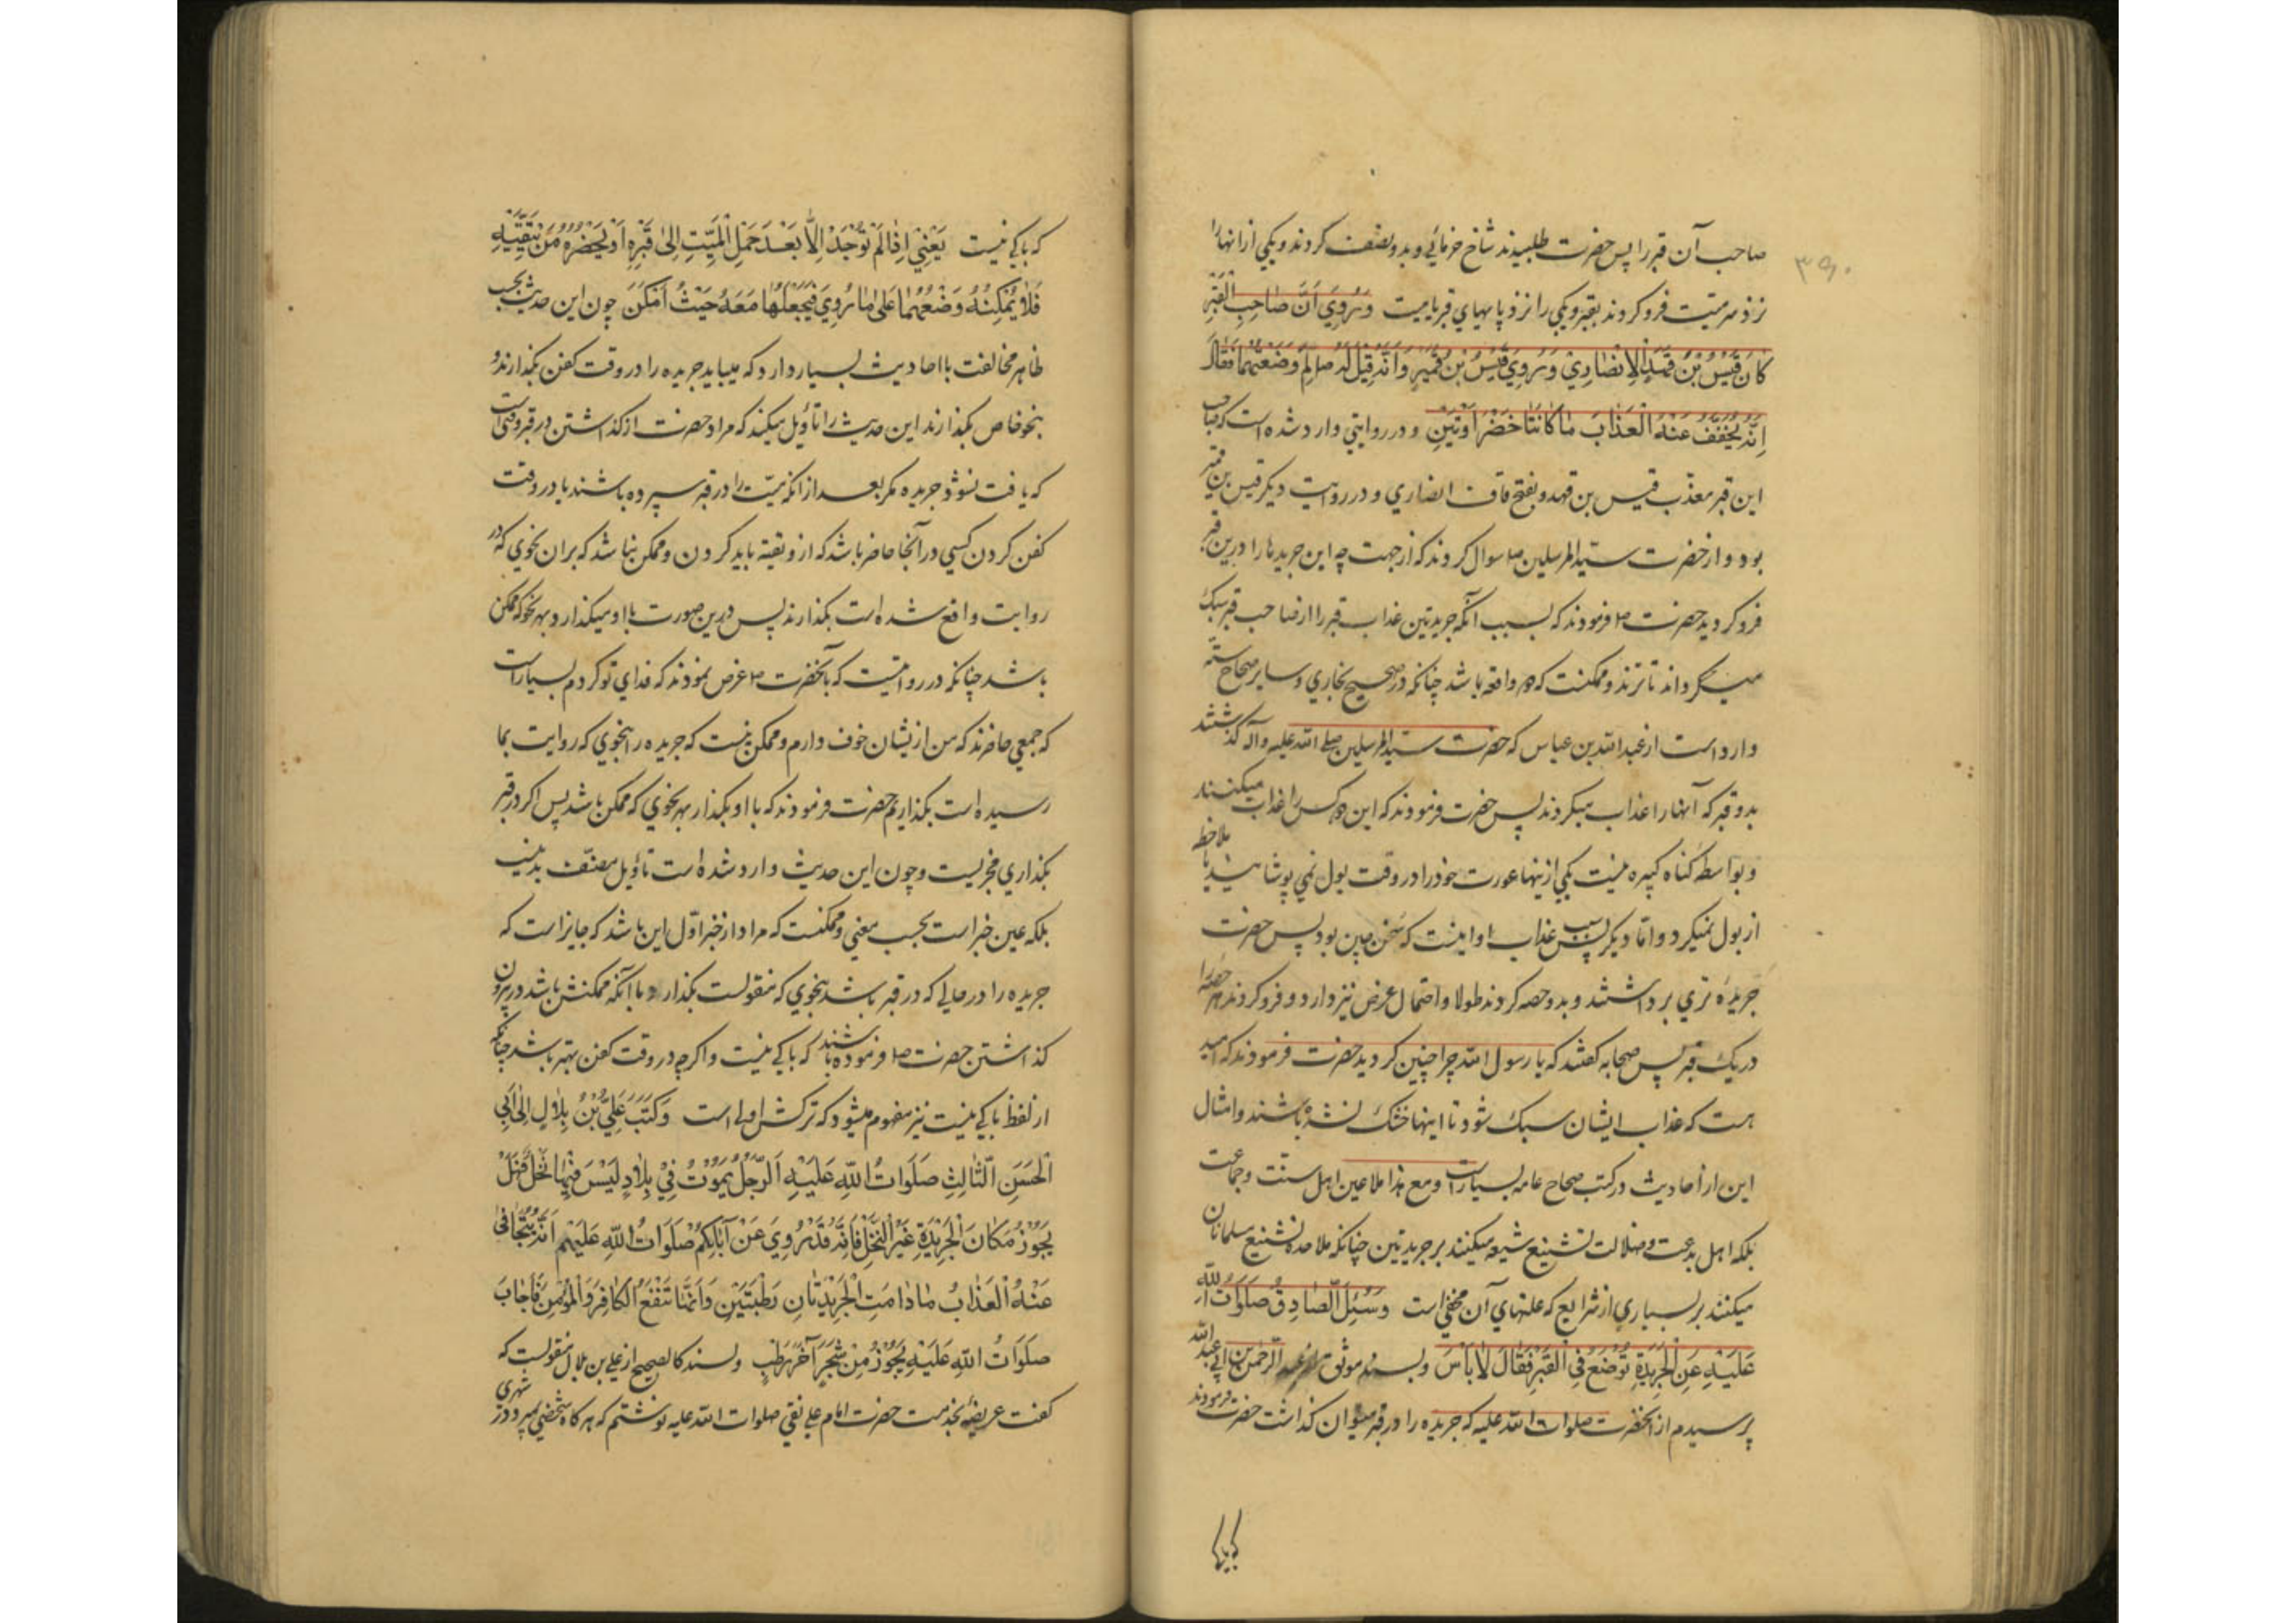 ۳۹۰
صاحب آن قبر را پس حضرت طلبیدند شاخ خرمائی و بدو نصف کردند و یکی از آنها را
نزد سر میت فرو کردند بقبر و یکی را نزد پاهای قربا میت وَرُوِيَ أَنَّ صَاحِبَ الْقَبْرِ
كَانَ قَيْسُ بْنُ قَهْدٍ الْأَنْصَارِيّ وَرُوِيَ قَيْسُ بْنُ قُمَيْرٍ وَأَنَّهُ قِيلَ لَهُ صلم لِمَ وَضَعْتَهُمَا فَقَالَ
إِنَّهُ يُخَفَّفُ عَنْهُ الْعَذَابَ مَا كَانَتَا خَضْرَاوَتَيْنِ و در روایتی وارد شده است که صاحب
این قبر معذّب قیس بن قهد و بفتح قاف انصاری و در روایت دیگر قیس بن قمیر
بود و از حضرت سید المرسلین ص سوال کردند که از جهت چه این جریدها را درین قبر
فرو کردید حضرت ص فرمودند که بسبب آنکه جریدتین عذاب قبر را از صاحب قبر سبک
میگرداند تا ترند و ممکنست که دو واقعه باشد چنانکه در صحیح بخاری و سایر صحاح سته
وارد است از عبدالله بن عباس که حضرت سید المرسلین صلی الله علیه و آله گذشتند
بدو قبر که آنها را عذاب میکردند پس حضرت فرمودند که این دو کس را عذاب میکنند
و بواسطه گناه کبیره نیست یکی از ینها عورت خود را در وقت بول نمی پوشانید یا ملاحظه
از بول نمیکرد و اما دیگر پس سبب عذاب او اینست که سخن چین بود پس حضرت
جریدهٔ تری برداشتند و بدو حصه کردند طولا و احتمال عرض نیز دارد و فرو کردند هر حصه را
در یک قبر پس صحابه گفتند که یا رسول الله چرا چنین کردید حضرت فرمودند که امید
هست که عذاب ایشان سبک شود تا اینها خشک نشده باشند و امثال
این از احادیث در کتب صحاح عامه بسیار است و مع هذا ملاعین اهل سنت و جماعت
بلکه اهل بدعت و ضلالت تشنیع شیعه میکنند بر جریدتین چنانکه ملاحده تشنیع مسلمانان
میکنند بر بسیاری از شرایع که علتهای آن مخفی است وَسُئِلَ الصَّادِقُ صَلَوَاتُ اللهِ
عَلَيْهِ عَنِ الْجَرِيدَةِ تُوضَعُ فِي الْقَبْرِ فَقَالَ لَا بَأْسَ و بسند موثق از عبد الرحمن بن ابی عبد الله
پرسیدم از آنحضرت صلوات الله علیه که جریده را در قبر میتوان گذاشت حضرت فرمودند
که باکی
که باکی نیست يَعْنِي إِذَا لَمْ تُوجَدْ إِلَّا بَعْدَ حَمْلِ الْمَيِّتِ إِلَى قَبْرِهِ أَوْ يَحْضُرُهُ مَنْ يَتَّقِيَهُ
فَلَا يُمْكِنُهُ وَضْعُهُمَا عَلَى مَا رُوِيَ فَيَجْعَلُهَا مَعَهُ حَيْثُ أَمْكَنَ چون این حدیث بحسب
ظاهر مخالفت با احادیث بسیار دارد که میباید جریده را در وقت کفن بگذارند و
بنحو خاص بگذارند این حدیث را تأویل میکند که مراد حضرت از گذاشتن در قبر وقتی است
که یافت نشود جریده مگر بعد از آنکه میت را در قبر سپرده باشند یا در وقت
کفن کردن کسی در آنجا حاضر باشد که از و تقیه باید کردن و ممکن نباشد که بران نحوی که در
روایت واقع شده است بگذارند پس درین صورت با او میگذارد بهر نحو که ممکن
باشد چنانکه در روایتیست که بآنحضرت ص عرض نمودند که فدای تو گردم بسیار است
که جمعی حاضرند که من از یشان خوف دارم و ممکن نیست که جریده را بنحوی که روایت بما
رسیده است بگذاریم حضرت فرمودند که با او بگذار بهر نحوی که ممکن باشد پس اگر در قبر
بگذاری مجزیست و چون این حدیث وارد شده است تأویل مصنّف بد نیست
بلکه عین خبر است بحسب معنی و ممکنست که مراد از خبر اول این باشد که جایز است که
جریده را در حالی که در قبر باشد بنحوی که منقولست بگذارد با آنکه ممکنش باشد در بیرون
گذاشتن حضرت ص فرموده باشند که باکی نیست و اگرچه در وقت کفن بهتر باشد چنانکه
از لفظ باکی نیست نیز مفهوم میشود که ترکش اولی است وَكَتَبَ عَلِيُّ بْنُ بِلَالٍ إِلَى أَبِي
الْحَسَنِ الثَّالِثِ صَلَوَاتُ اللهِ عَلَيْهِ الرَّجُلُ يَمُوتُ فِي بِلَادٍ لَيْسَ فِيهَا نَخْلٌ فَهَلْ
يَجُوزُ مَكَانَ الْجَرِيدَةِ غَيْرُ النَّخْلِ فَإِنَّهُ قَدْ رُوِيَ عَنْ آبَائِكُمْ صَلَوَاتُ اللهِ عَلَيْهِمْ أَنَّهُ يُتَجَافَى
عَنْهُ الْعَذَابُ مَا دَامَتِ الْجَرِيدَتَانِ رَطْبَتَيْنِ وَأَنَّهَا تَنْفَعُ الْكَافِرَ وَالْمُؤْمِنَ فَأَجَابَ
صَلَوَاتُ اللهِ عَلَيْهِ يَجُوزُ مِنْ شَجَرٍ آخَرَ رَطْبٍ و بسند کالصحیح از علی بن بلال منقولست که
گفت عریضه بخدمت حضرت امام علی نقی صلوات الله علیه نوشتم که هرگاه شخصی بمیرد در شهری